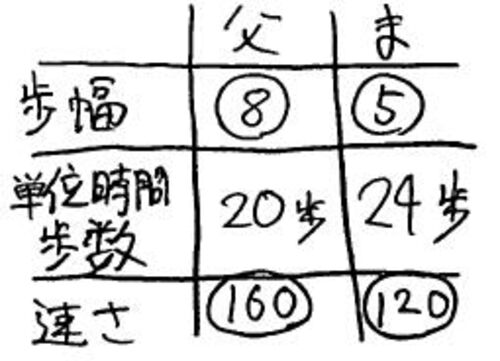 父 ま
歩幅 8 5
単位時間
歩数 20歩 24歩
速さ 160 120